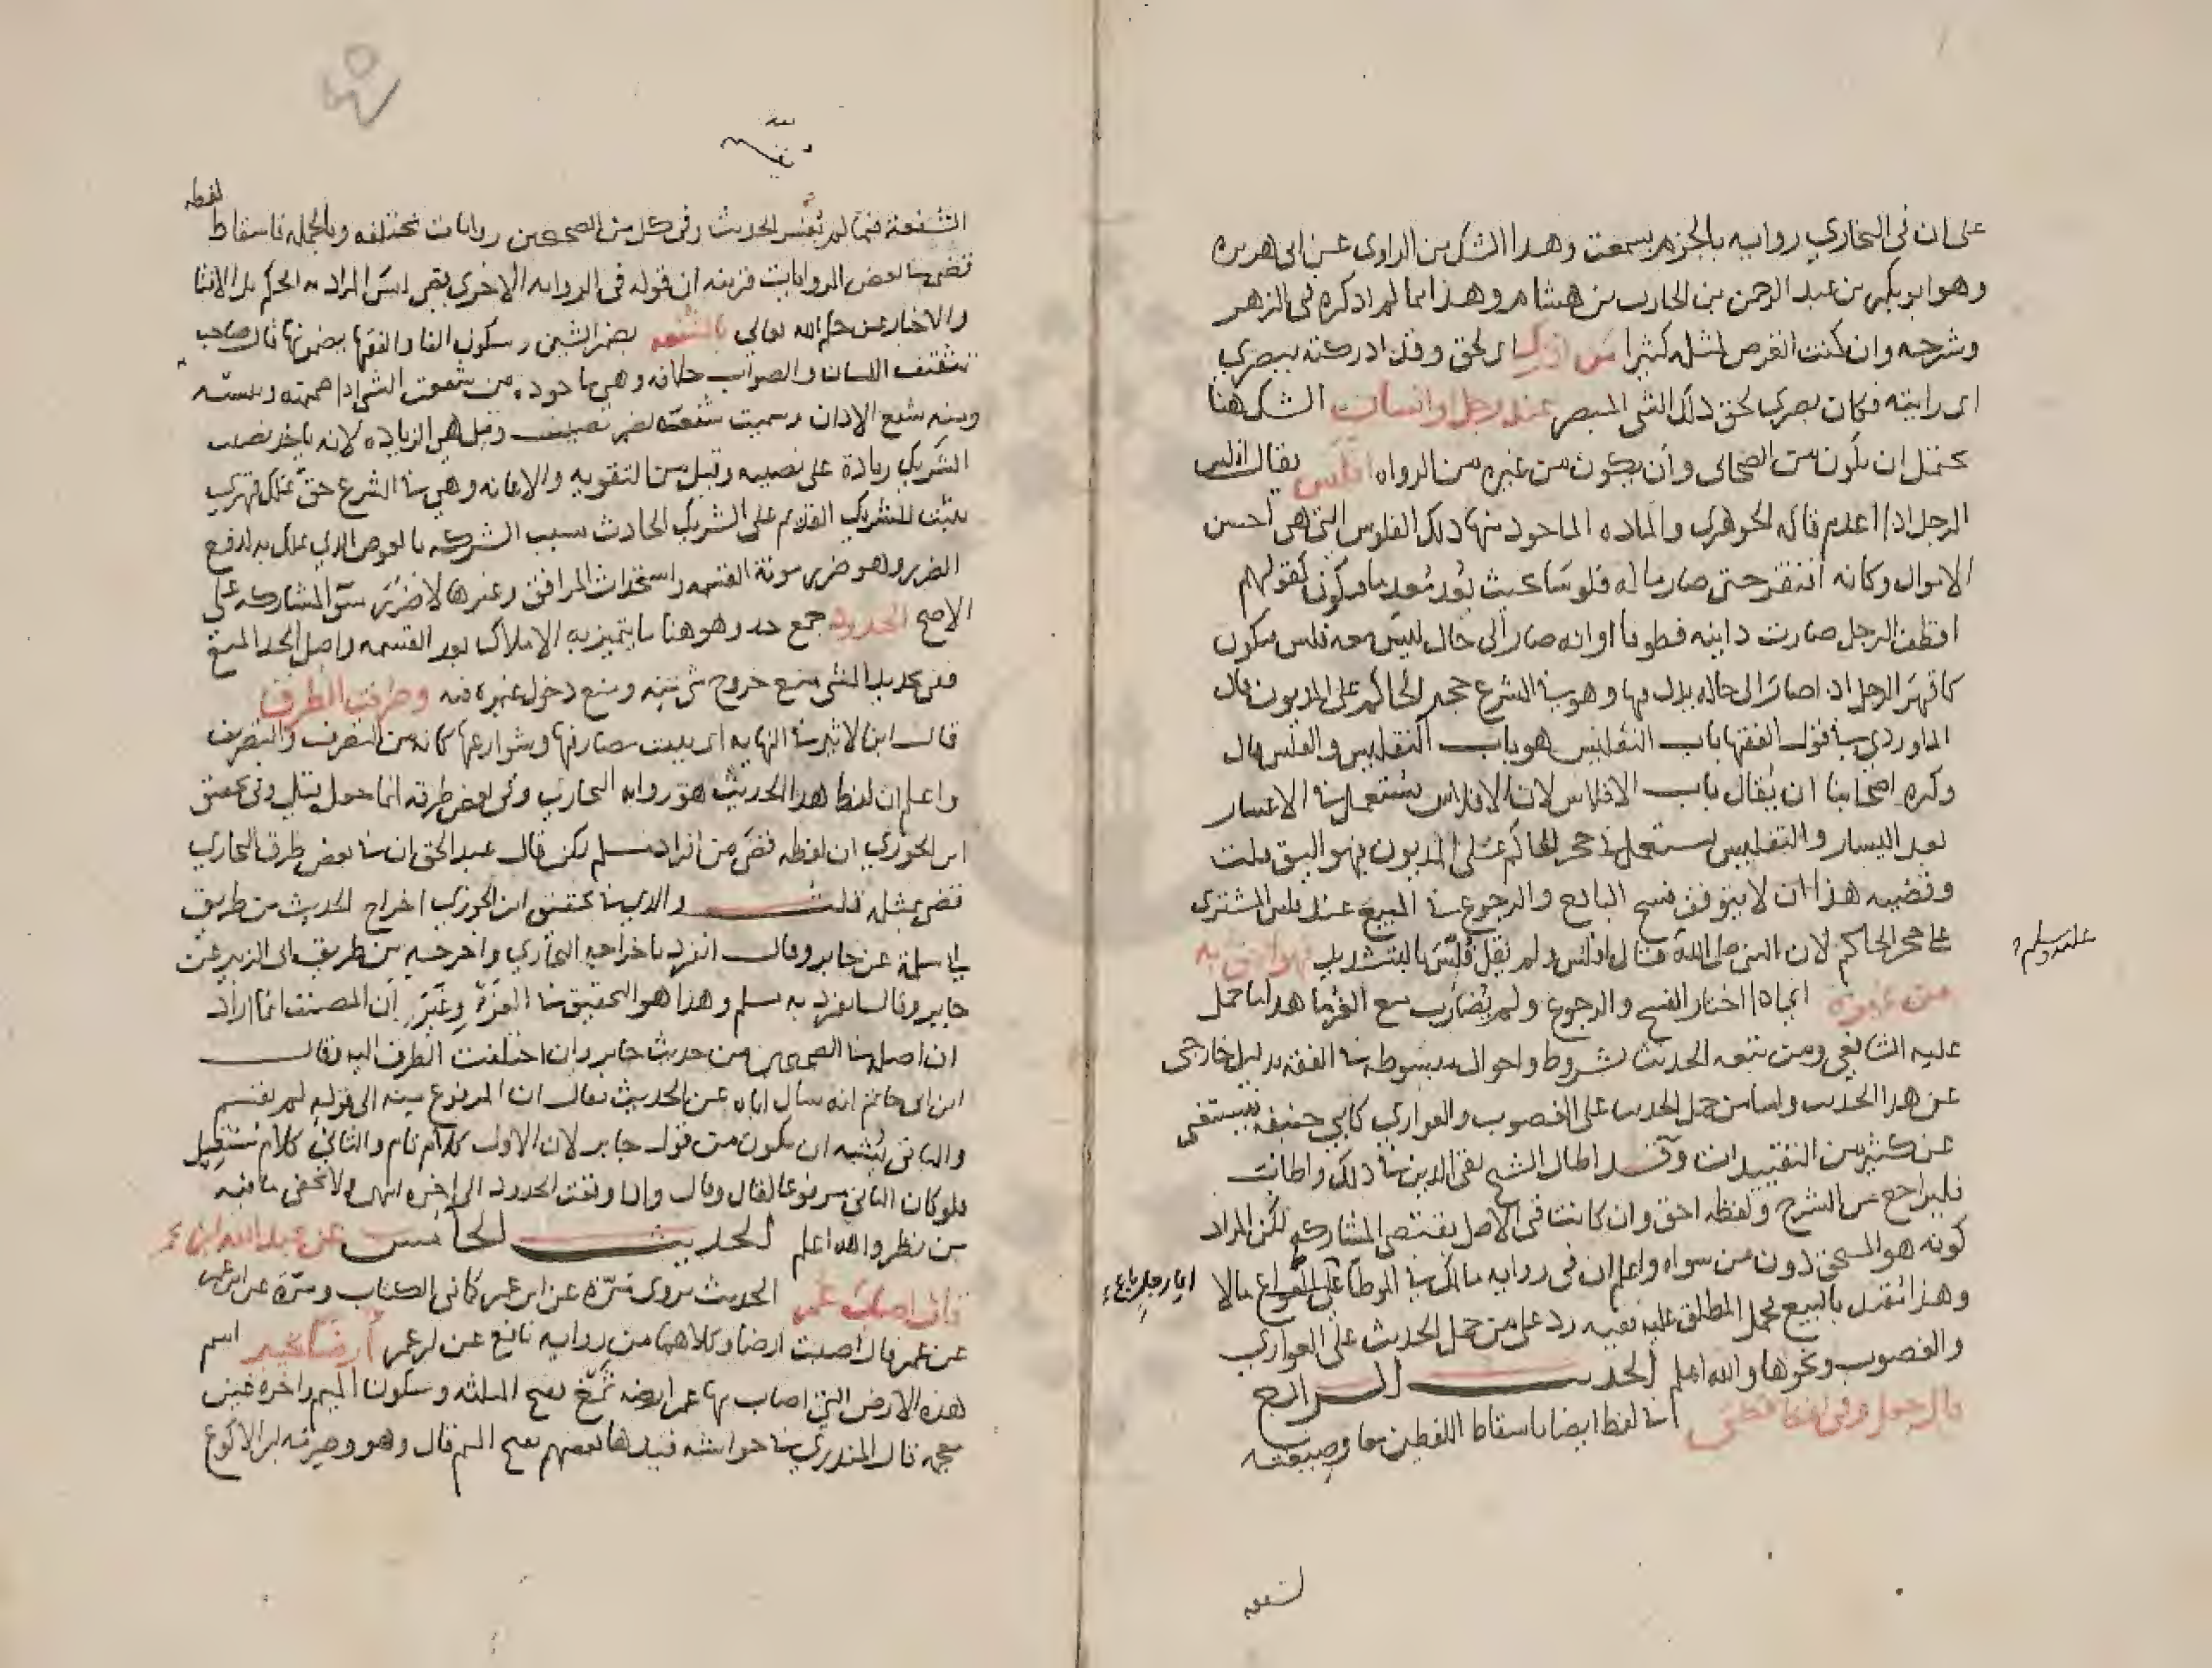 على ان في البخاري روايه بالجزم بسمعت وهذا الشك من الراوي عن ابي هريره
وهو ابو بكر بن عبد الرحمن بن الحارث بن هشام وهذا مما لم اذكره في الزهر
وشرحه وان كنت الغرض لمثله كثيرا من ادرك اي لحق وقد ادركته ببصري
اي رايته فكان بصري لحق ذلك الشي المبصر عند رجل او انسان الشك هنا
يحتمل ان يكون من الصحابي وان يكون من غيره من الرواه افلس يقال افلس
الرجل اذا اعدم قاله الجوهري والماده الماخوذ منها ذلك الفلوس التي هي احسن
الاموال وكانه افتقر حتى صار ماله فلوسا بحيث يعود بعد ما ويكون كقولهم
اقطف الرجل صارت دابته قطوفا او انه صار الى حال ليس معه فلس ويكون
كاقهر الرجل اذا صار الى حاله يذل فيها وهو في الشرع حجر الحاكم على المديون قال
الماوردي في قول الفقها باب التفليس هو باب التفليس والفلس قال
وكره اصحابنا ان يقال باب الافلاس لان الافلاس يستعمل في الاعسار
بعد اليسار والتفليس يستعمل في حجر الحاكم على المديون فهو اليق قلت
وقضيه هذا ان لا يتوقف فسخ البايع والرجوع في المبيع عند فلس المشتري
على حجر الحاكم لان النبي صلى الله قال افلس ولم يقل فلس بالتشديد فهو احق به
عليه وسلم
من غيره اي اذا اختار الفسخ والرجوع ولم يضارب مع الغرما هذا ما حمل
عليه الشافعي ومن تبعه الحديث بشروط واحوال مبسوطه في الفقه بدليل خارجي
عن هذا الحديث واما من حمل الحديث على الغصوب والعواري كابي حنيفه فيستغني
عن كثير من التقييدات وقد اطال الشيخ تقي الدين في ذلك واطاب
فليراجع من الشرح ولفظه احق وان كانت في الاصل يقتضي المشاركه لكن المراد
كونه هو المستحق دون من سواه واعلم ان في روايه مالك في الموطا ايما رجل باع مالا
وهذا تقييد بالبيع يحمل المطلق عليه ففيه رد على من حمل الحديث على العواري
والغصوب ونحوها والله اعلم الحديث الرابع
قال جعل وفي لفظ قضى لفظ ايضا باسقاط اللفظين معا وصيغته
لشفعه
لفظه
الشفعة فيما لم يقسم الحديث وفي كل من الصحيحين روايات مختلفه وبالجمله فاسقاط
قضى في بعض الروايات قرينه ان قوله في الروايه الاخرى قضى ليس المراد به الحكم بل الافتا
والاخبار عن حكم الله تعالى بالشفعه بضم الشين وسكون الفا والفقها يضمونها قال صاحب
تثقيف اللسان والصواب خلافه وهي ماخوذه من شفعت الشي اذا ضممته وثنيته
ومنه شفع الاذان وسميت شفعة لضم نصيب وقيل هي الزياده لانه ياخذ نصيب
الشريك زيادة على نصيبه وقيل من التقويه والاعانه وهي في الشرع حق تملك قهري
يثبت للشريك القديم على الشريك الحادث بسبب الشركه بالعوض الذي تملك به لدفع
الضرر وهو ضرر مونة القسمه واستحداث المرافق وغيرها لا ضرر سو المشاركه على
الاصح الحدود جمع حد وهو هنا ما يتميز به الاملاك بعد القسمه واصل الحد المنع
ففي تحديد الشي منع خروج شي منه ومنع دخول غيره فيه وصرفت الطرق
قال ابن الاثير في النهايه اي بينت مصارفها وشوارعها كانه من التصرف والتصريف
واعلم ان لفظ هذا الحديث هو روايه البخاري وفي بعض طرقه انما جعل النبي وفي تحقيق
ابن الجوزي ان لفظه قضى من افراد مسلم لكن قال عبد الحق ان في بعض طرق البخاري
قضى مثله قلت والذي في تحقيق ابن الجوزي اخراج الحديث من طريق
ابي سلمة عن جابر وقال انفرد باخراجه البخاري واخرجه من طريق ابي الزبير عن
جابر وقال انفرد به مسلم وهذا هو التحقيق في العزو وغير ان المصنف انما اراد
ان اصله في الصحيحين من حديث جابر وان اختلفت الطرق اليه وقال
ابن ابي حاتم انه سال اباه عن الحديث فقال ان المرفوع منه الى قوله لم يقسم
والباقي يشبه ان يكون من قول جابر لان الاول كلام تام والثاني كلام مستقبل
فلو كان الثاني مرفوعا لقال وقال واذا وقعت الحدود الى اخره انتهى ولا يخفى ما فيه
من نظر والله اعلم الحديث الخامس عن عبد الله ابن عمر
قال اصاب عمر الحديث يروى مرة عن ابن عمر كما في الكتاب ومرة عن ابن عمر
عن عمر قال اصبت ارضا وكلاهما من روايه نافع عن ابن عمر ارضا بخيبر اسم
هذه الارض التي اصاب بها عمر ارضه ثمغ بفتح المثلثه وسكون الميم واخره غين
معجمه قال المنذري في حواشيه قيدها بعضهم بفتح الميم قال وهو وصرمة ابن الاكوع